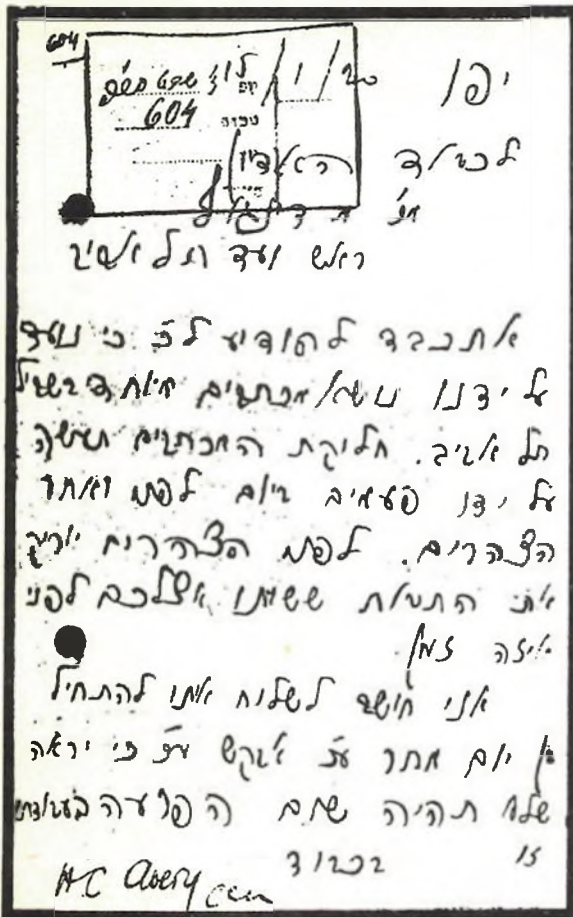 604
604
יפו
לכבוד
מר
ראש ועד תל אביב
אתכבד להודיע לכ׳ כי נועד
על ידנו נושא מכתבים מיוחד בשביל
תל אביב. חליקת המכתבים תעשה
על ידו פעמים ביום לפני ואחר
הצהרים. לפני הצהרים יוריק
את התבות ששמנו אצלכם לפני
איזה זמן
אני חושב לשלוח אותו להתחיל
מן יום מחר ע״כ אבקש מכ׳ כי יראה
שלא תהיה שום הפרעה בעבודתו
זו בכבוד
HC Avery